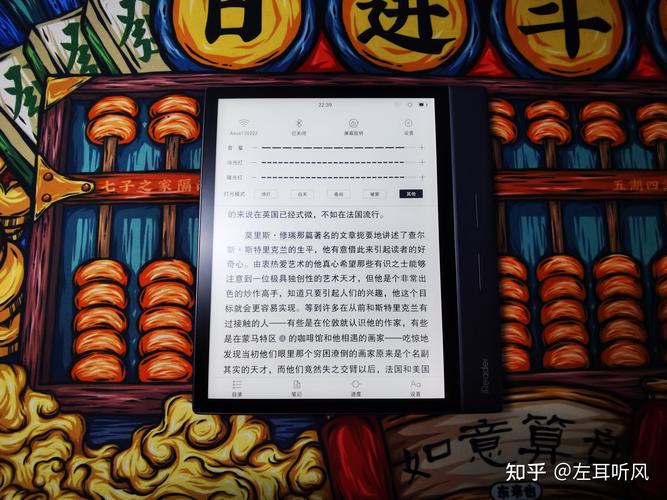 日进斗
七子之家隔
五湖四
22:39
Asus120222
已关闭
屏幕旋转
设置
音量
冷光灯
暖光灯
灯光模式
夜间
白天
其他
的来说在英国已经式微，不如在法国流行。
莫里斯·修瑞那篇著名的文章扼要地讲述了查尔
斯·斯特里克兰的生平，他有意借此来引起读者的好
奇心。由衷热爱艺术的他真心希望那些有识之士能够
注意到一位极具独创性的艺术天才，但他是个非常出
色的炒作高手，知道只要引起人们的兴趣，他这个目
标就会更容易实现。等到许多在从前和斯特里克兰有
过接触的人——有些是在伦敦就认识他的作家，有些
是在蒙马特区的咖啡馆和他相遇的画家——吃惊地
发现当初他们眼里那个穷困潦倒的画家原来是个名副
其实的天才，而他们竟然失之交臂以后，法国和美国
目录
笔记
进度
Aa
设置
iReader
如意算
知乎 @左耳听风